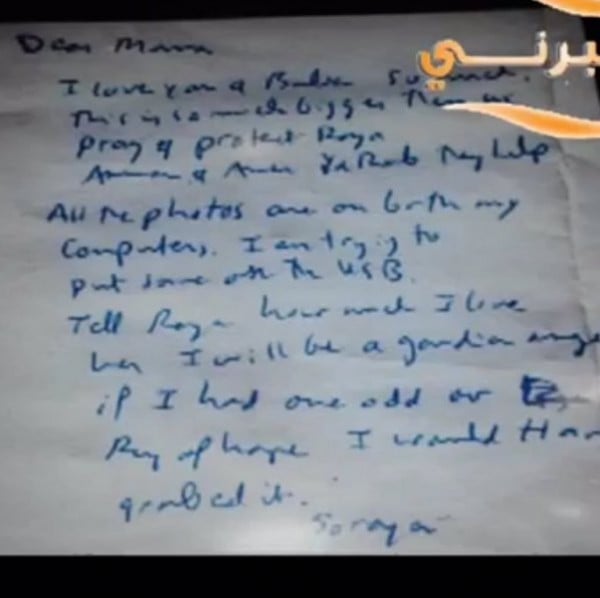 Dear Mama
برني
I love you & Baba so much.
This is so much bigger than us
Pray & protect Roya
& Ya Rab They help
All the photos are on both my
Computers. I am trying to
put some on the USB.
Tell Roya how much I love
her I will be a gardian ange
if I had one odd or
Ray of hope I would Hav
grabed it.
Soraya